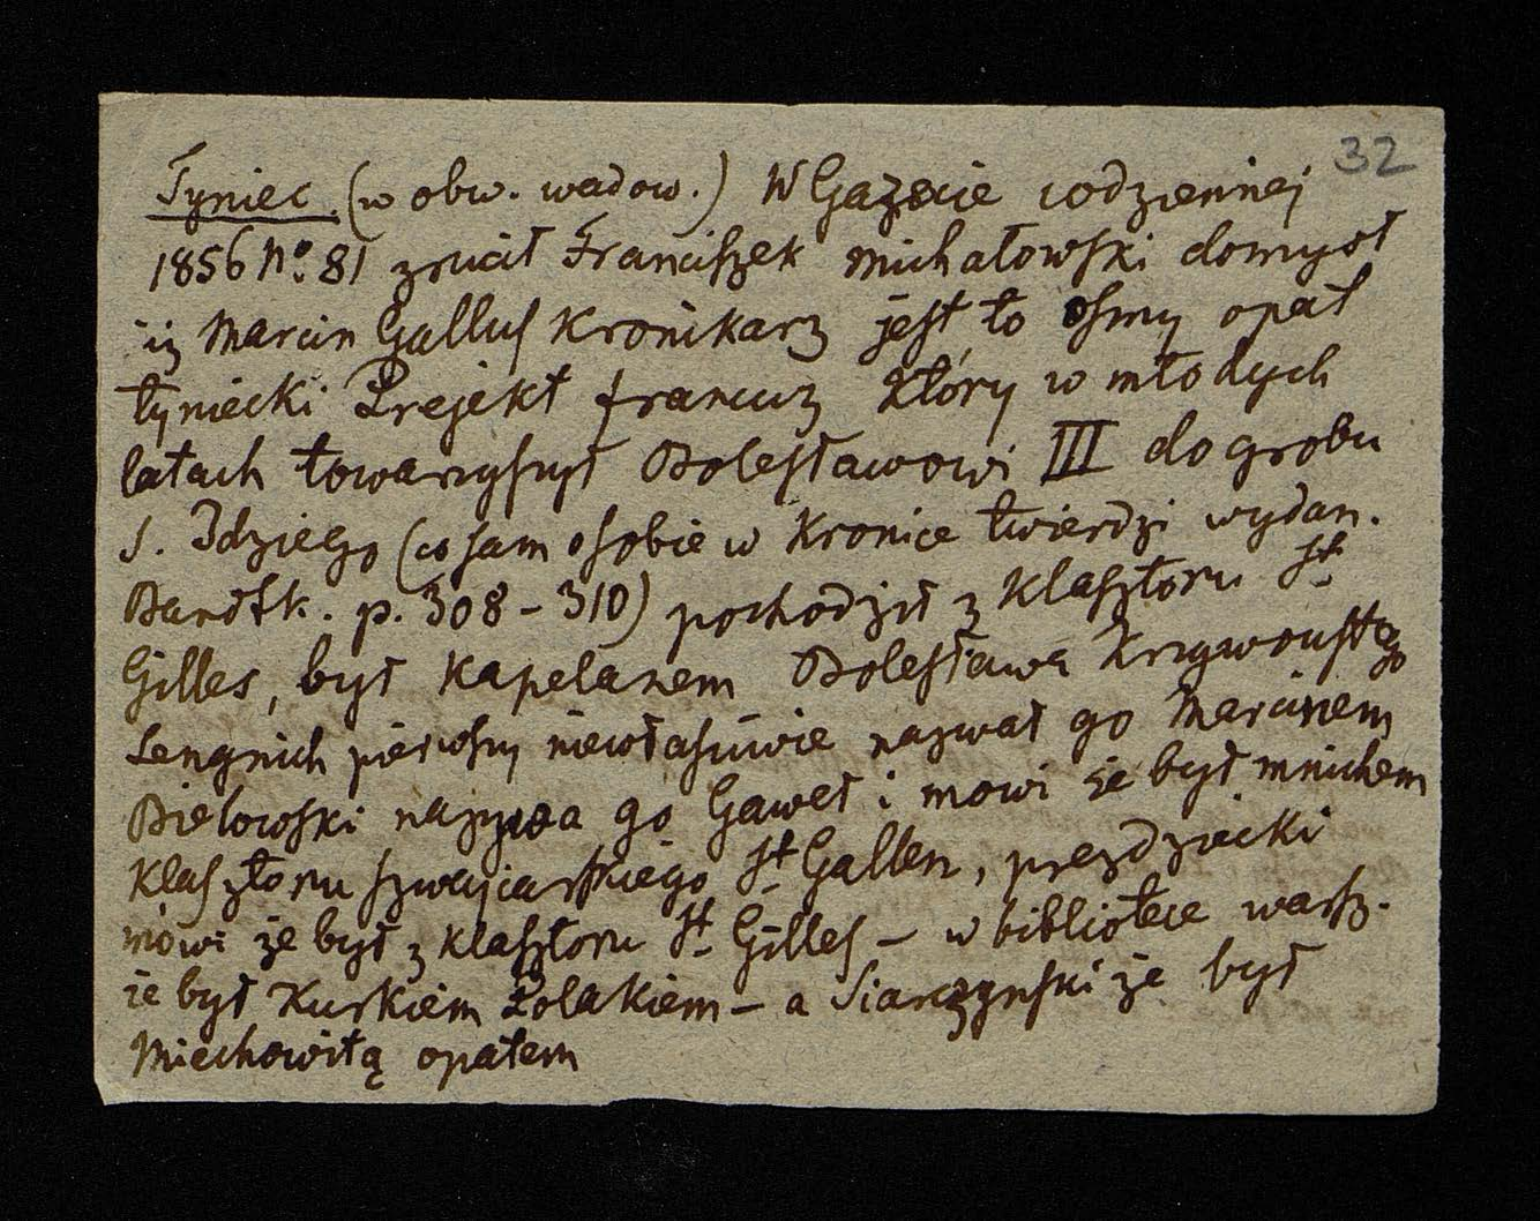 32
Tyniec (w obw. wadow.) W Gazecie codziennej
1856 No. 81 zrucił Franciszek Michałowski domysł
iż Marcin Gallus Kronikarz jest to osmy opat
tyniecki Prejekt francuz który w młodych
latach towarzyszył Bolesławowi III do grobu
S. Idziego (co sam o sobie w Kronice twierdzi wydan.
Bandtk. p. 308 - 310) pochodził z Klasztoru St
Gilles, był Kapelanem Bolesława Krzywoustego
Lengnich pierwszy niewłaściwie nazwał go Marcinem
Bielowski nazywa go Gaweł i mowi że był mnichem
Klasztoru szwajcarskiego St Gallen, przezdziecki
mówi że był z klasztoru St Gilles - w bibliotece warsz.
że był Kurkiem Polakiem - a Siarczynski że był
Miechowitą opatem